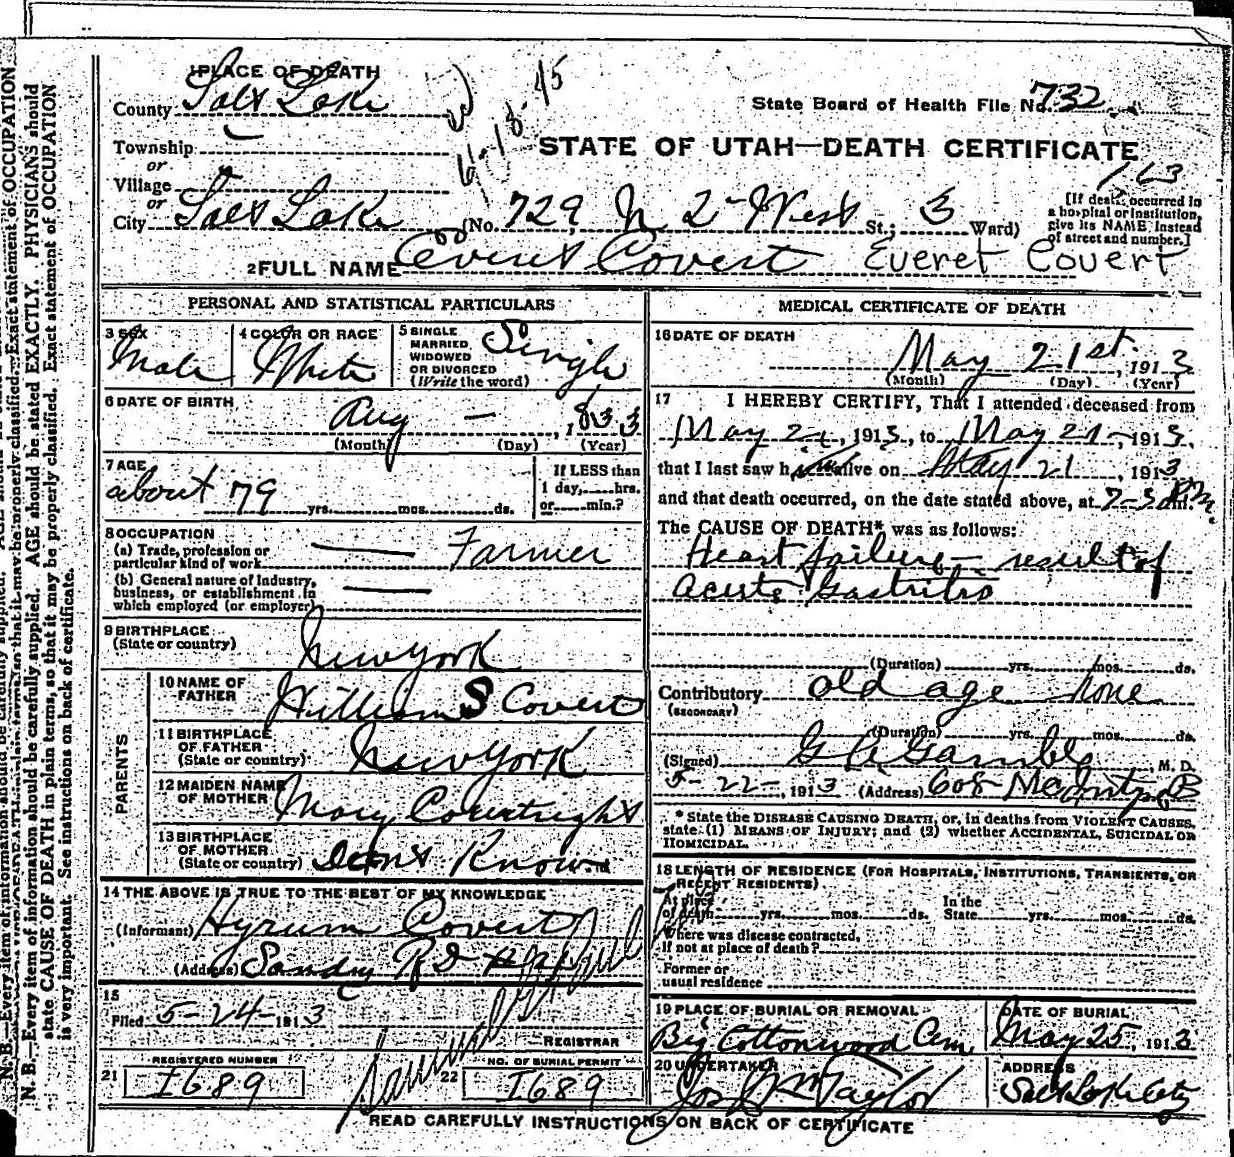 N. B.—Every item of information should be carefully supplied. AGE should be stated EXACTLY. PHYSICIANS should
state CAUSE OF DEATH in plain terms, so that it may be properly classified. Exact statement of OCCUPATION
is very important. See instructions on back of certificate.
1 PLACE OF DEATH
County Salt Lake
Township
or
Village
or
City Salt Lake (No. 729 N 2 West St.; 3 Ward)
11-13-45
State Board of Health File No. 732
STATE OF UTAH—DEATH CERTIFICATE
163
[If death occurred in
a hospital or institution,
give its NAME instead
of street and number.]
2 FULL NAME Everet Covert Everet Covert
PERSONAL AND STATISTICAL PARTICULARS
3 SEX
Male
4 COLOR OR RACE
White
5 SINGLE
MARRIED,
WIDOWED
OR DIVORCED
(Write the word)
Single
6 DATE OF BIRTH
Aug — , 1833
(Month) (Day) (Year)
7 AGE
about 79 yrs. mos. ds.
If LESS than
1 day, hrs.
or min.?
8 OCCUPATION
(a) Trade, profession or
particular kind of work — Farmer
(b) General nature of Industry,
business, or establishment in
which employed (or employer) —
9 BIRTHPLACE
(State or country) New York
PARENTS
10 NAME OF
FATHER William S Covert
11 BIRTHPLACE
OF FATHER
(State or country) New York
12 MAIDEN NAME
OF MOTHER Mary Courtright
13 BIRTHPLACE
OF MOTHER
(State or country) Dont Know
14 THE ABOVE IS TRUE TO THE BEST OF MY KNOWLEDGE
(Informant) Hyrum Covert
(Address) Sandy R D
15
Filed 5-24-1913
REGISTRAR
REGISTERED NUMBER
21 I689
NO. OF BURIAL PERMIT
22 I689
MEDICAL CERTIFICATE OF DEATH
16 DATE OF DEATH
May 21st, 1913
(Month) (Day) (Year)
17 I HEREBY CERTIFY, That I attended deceased from
May 21, 1913, to May 21, 1913,
that I last saw him alive on May 21, 1913
and that death occurred, on the date stated above, at 7-30 P.m.
The CAUSE OF DEATH* was as follows:
Heart failure — result of
acute Gastritis
(Duration) yrs. mos. ds.
Contributory old age none
(SECONDARY)
(Duration) yrs. mos. ds.
(Signed) G A Gamble M. D.
5-22-, 1913 (Address) 608 McIntyre B
* State the DISEASE CAUSING DEATH, or, in deaths from VIOLENT CAUSES,
state (1) MEANS OF INJURY; and (2) whether ACCIDENTAL, SUICIDAL OR
HOMICIDAL.
18 LENGTH OF RESIDENCE (FOR HOSPITALS, INSTITUTIONS, TRANSIENTS, OR
RECENT RESIDENTS)
At place
of death yrs. mos. ds. In the
State yrs. mos. ds.
Where was disease contracted,
if not at place of death?
Former or
usual residence
19 PLACE OF BURIAL OR REMOVAL
Big Cottonwood Cem
DATE OF BURIAL
May 25, 1913
20 UNDERTAKER
Jos Wm Taylor
ADDRESS
Salt Lake City
READ CAREFULLY INSTRUCTIONS ON BACK OF CERTIFICATE